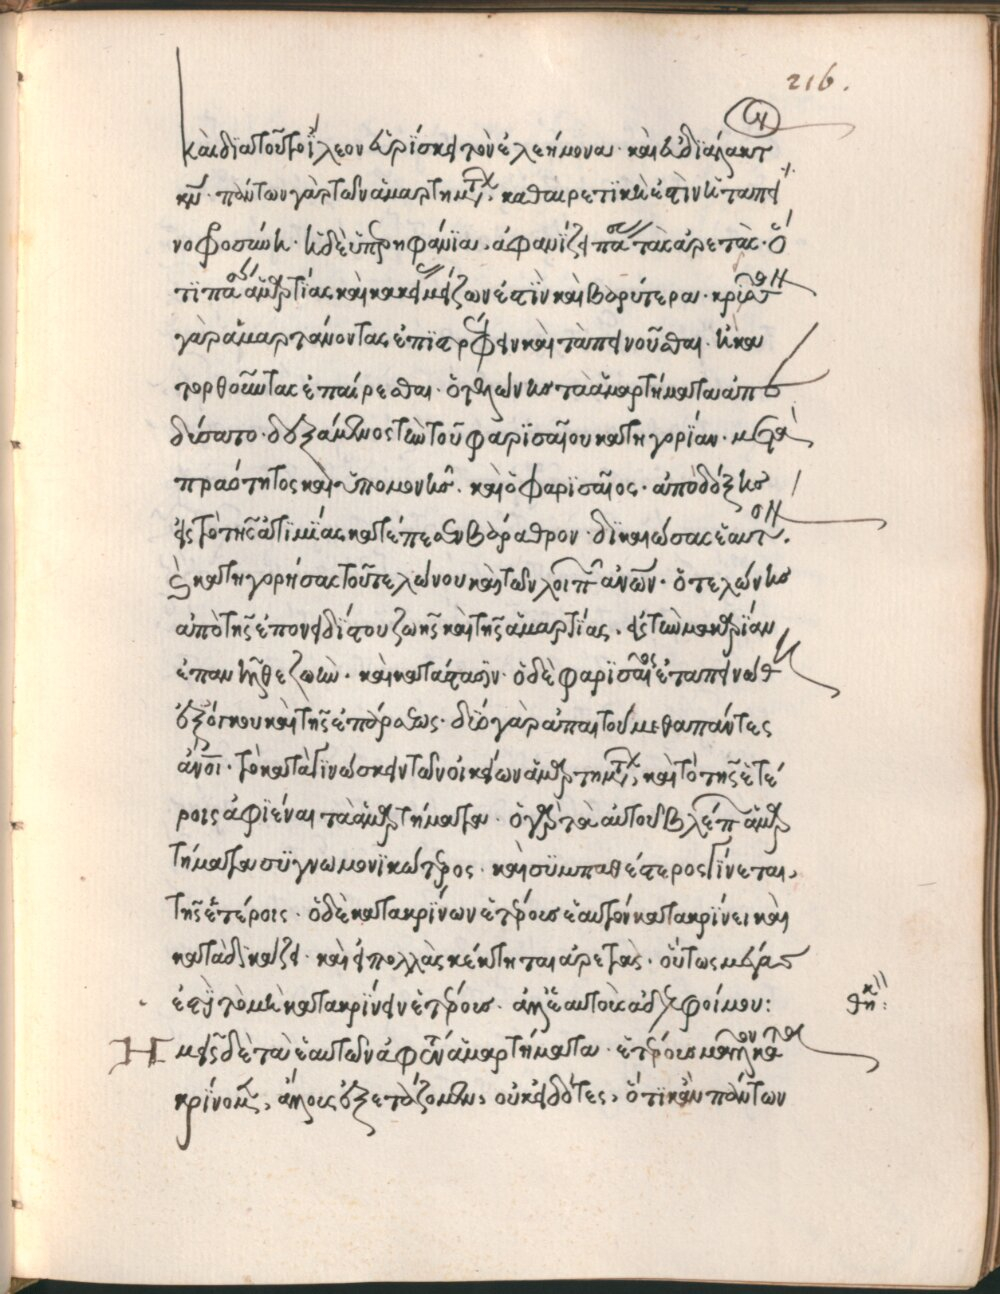 216.
καὶ διὰ τοῦτο ἵλεον εὑρίσκει τὸν ἐλεήμονα· καὶ εὐδιάλλακτ
κν̃· πάντων γὰρ τῶν ἁμαρτημτ̃· καθαιρετικὴ ἐστὶν ἡ ταπει
νοφροσύνη· ἡ δὲ ὑπερηφάνϊα· ἀφανίζει πάσ τὰς ἀρετάς· ὅ
τϊ πάσ ἁμαρτίας καὶ κακί μείζων ἐστὶν καὶ βαρύτερα· κρεῖτ
γὰρ ἁμαρτάνοντας ἐπϊστρέφειν καὶ ταπεινοῦσθαι· ἢ κα
τορθοῦντας ἐπαίρεσθαι· ὁ τελώνης τὰ ἁμαρτήματα ἀπ
δύσατο· δεξάμενος τὴν τοῦ φαρϊσαίου κατηγορίαν· μετὰ
πραότητος καὶ ὑπομονῆς· καὶ ὁ φαρϊσαῖος· ἀπὸ δόξης
εἰς τὸ τῆς ἀτϊμίας κατέπεσεν βάραθρον· δϊκαιώσας ἑαυτ.
καὶ κατηγορήσας τοῦ τελώνου καὶ τῶν λοιπ ἀνῶν· ὁ τελώνης
ἀπὸ τῆς ἐπονειδίστου ζωῆς καὶ τῆς ἁμαρτίας· εἰς τὴν μακαρίαν
ἐπανῆλθε ζωὴν· καὶ κατάστασιν· ὁ δὲ φαρϊσαῖος ἐταπεινώθ
ἐξ ὄγκου καὶ τῆς ἐπάρσεως· δύο γὰρ ἀπαιτούμεθα πάντες
ἄνοι· τὸ καταγϊνώσκειν τῶν οἰκείων ἁμαρτημτ, καὶ τὸ τῆς ἑτέ
ροις ἀφϊέναι τὰ ἁμαρτήματα· ὁ γὰρ τὰ αὐτοῦ βλέπ ἁμαρ
τήματα συγνωμονϊκώτερος· καὶ συμπαθέστερος γίνεται,
τῆς ἑτέροις· ὁ δὲ κατακρίνων ἑτέρους ἑαυτὸν κατακρίνει καὶ
καταδϊκάζει· κἂν πολλὰς κέκτηται ἀρετάς· οὕτως μέγα
ἐστὶ τὸ μὴ κατακρίνειν ἑτέρους· ἀλλ' ἑαυτοὺς ἀδελφοίμου:
θη:
Ημεῖς δὲ τὰ ἑαυτῶν ἀφέντ ἁμαρτήματα· ἑτέρους μᾶλλον κατα
κρίνομ̃, ἄλλους ἐξετάζομεν, οὐκ εἰδότες, ὅτϊ κἂν πάντων